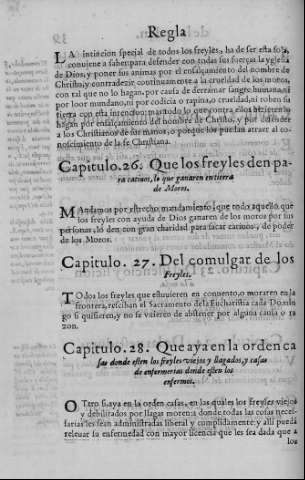 Regla
LA intincion special de todos los freyles, ha de ser esta sola,
conuiene a saber para defender con todas sus fuerças la yglesia
de Dios, y poner sus animas por el ensalçamiento del nombre de
Christo, y contradezir continuamente a la crueldad de los moros,
con tal que no lo hagan, por causa de derramar sangre humana, ni
por loor mundano, ni por codicia o rapina, o crueldad, ni roben su
tierra con esta intencion: mas todo lo que contra ellos hizieren lo
hagan por ensalçamiento del nombre de Christo, y por defender
a los Christianos de sus manos, o porque los puedan atraer al co
noscimiento de la fe Christiana.
Capitulo. 26. Que los freyles den pa
ra catiuos, lo que ganaren en tierra
de Moros.
MAndamos por estrecho mandamiento, que todo aquello que
los freyles con ayuda de Dios ganaren de los moros por sus
personas, lo den con gran charidad para sacar catiuos, de poder
de los Moros.
Capitulo. 27. Del comulgar de los
Freyles.
TOdos los freyles que estuuieren en conuento, o moraren en la
frontera, resciban el Sacramento de la Eucharistia cada Domin
go si quisieren, y no se vieren de abstener por alguna causa o ra
zon.
Capitulo. 28. Que aya en la orden ca
sas donde esten los freyles viejos y llagados, y casas
de enfermerias donde esten los
enfermos.
OTrosi aya en la orden casas, en las quales los freyles viejos
y debilitados por llagas moren: a donde todas las cosas neces-
sarias les sean administradas liberal y cumplidamente: y alli pueda
releuar su enfermedad con mayor licencia que les sea dada que a
los